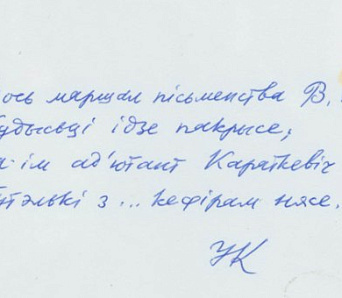 ось маршал пісьменства В.
ідзе пакрысе,
ім ад'ютант Караткевіч
з ... кефірам нясе.
УК